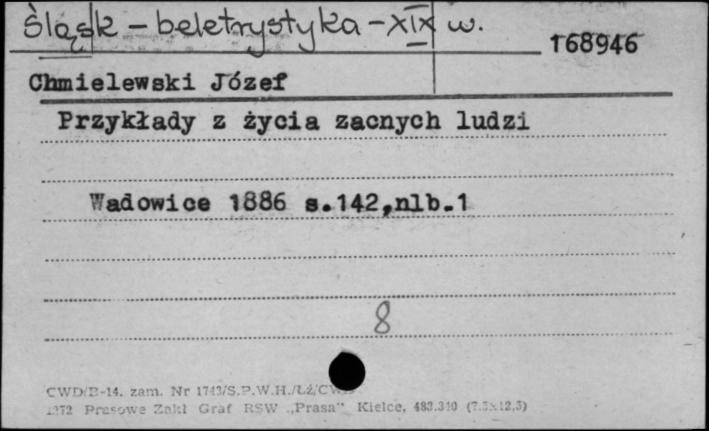 Śląsk – beletrystyka – XIX w.
168946
Chmielewski Józef
Przykłady z życia zacnych ludzi
Wadowice 1886 s.142,nlb.1
8
CWD/B-14. zam. Nr 1743/S.P.W.H./
Prasowe Zakł Graf RSW „Prasa" Kielce, 483.310 (7.5x12,5)